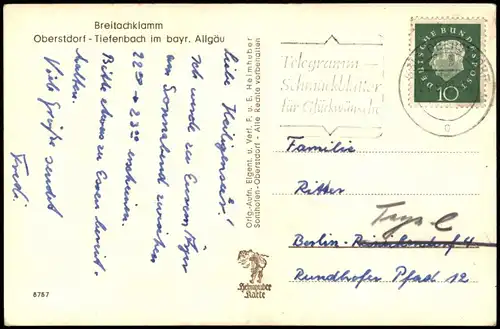 Breitachklamm
Oberstdorf - Tiefenbach im bayr. Allgäu
Liebe
Ich werde zu Eurem
am Sonnabend zwischen
22 00 + 23 00 erscheinen.
Bitte etwas zu Essen bereit
halten.
Viele Grüße sendet
Fredi.
8787
Orig.-Aufn. Eigent. u. Verl. F. u. E. Heimhuber
Sonthofen-Oberstdorf - Alle Rechte vorbehalten
Heimhuber
Karte
Telegramm-
Schmuckblätter
für Glückwünsche
DEUTSCHE BUNDESPOST
10
Familie
Ritter
Tegel
Berlin-Reinickendorf 4
Rundhofer Pfad 12